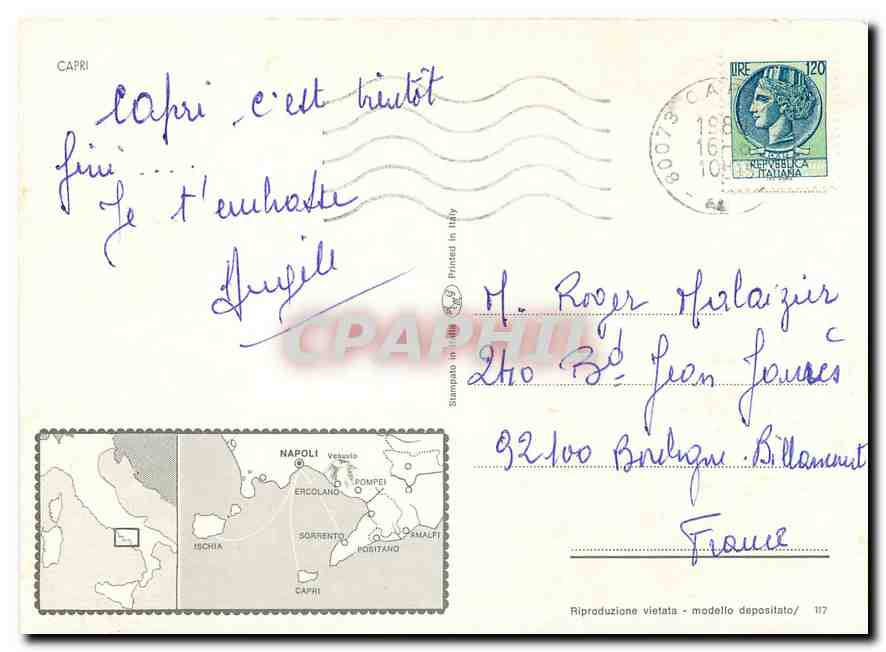 CAPRI
Capri c'est bientôt
fini .....
Je t'embrasse
Angèle
LIRE 120
REPVBBLICA
ITALIANA
80073 CA
198
16
10
Stampato in Italia Printed in Italy
CPAPHIL
M. Roger Malaizier
240 Bd Jean Jaurès
92100 Boulogne. Billancourt
France
NAPOLI
Vesuvio
ERCOLANO
POMPEI
ISCHIA
SORRENTO
POSITANO
AMALFI
CAPRI
Riproduzione vietata - modello depositato/ 117